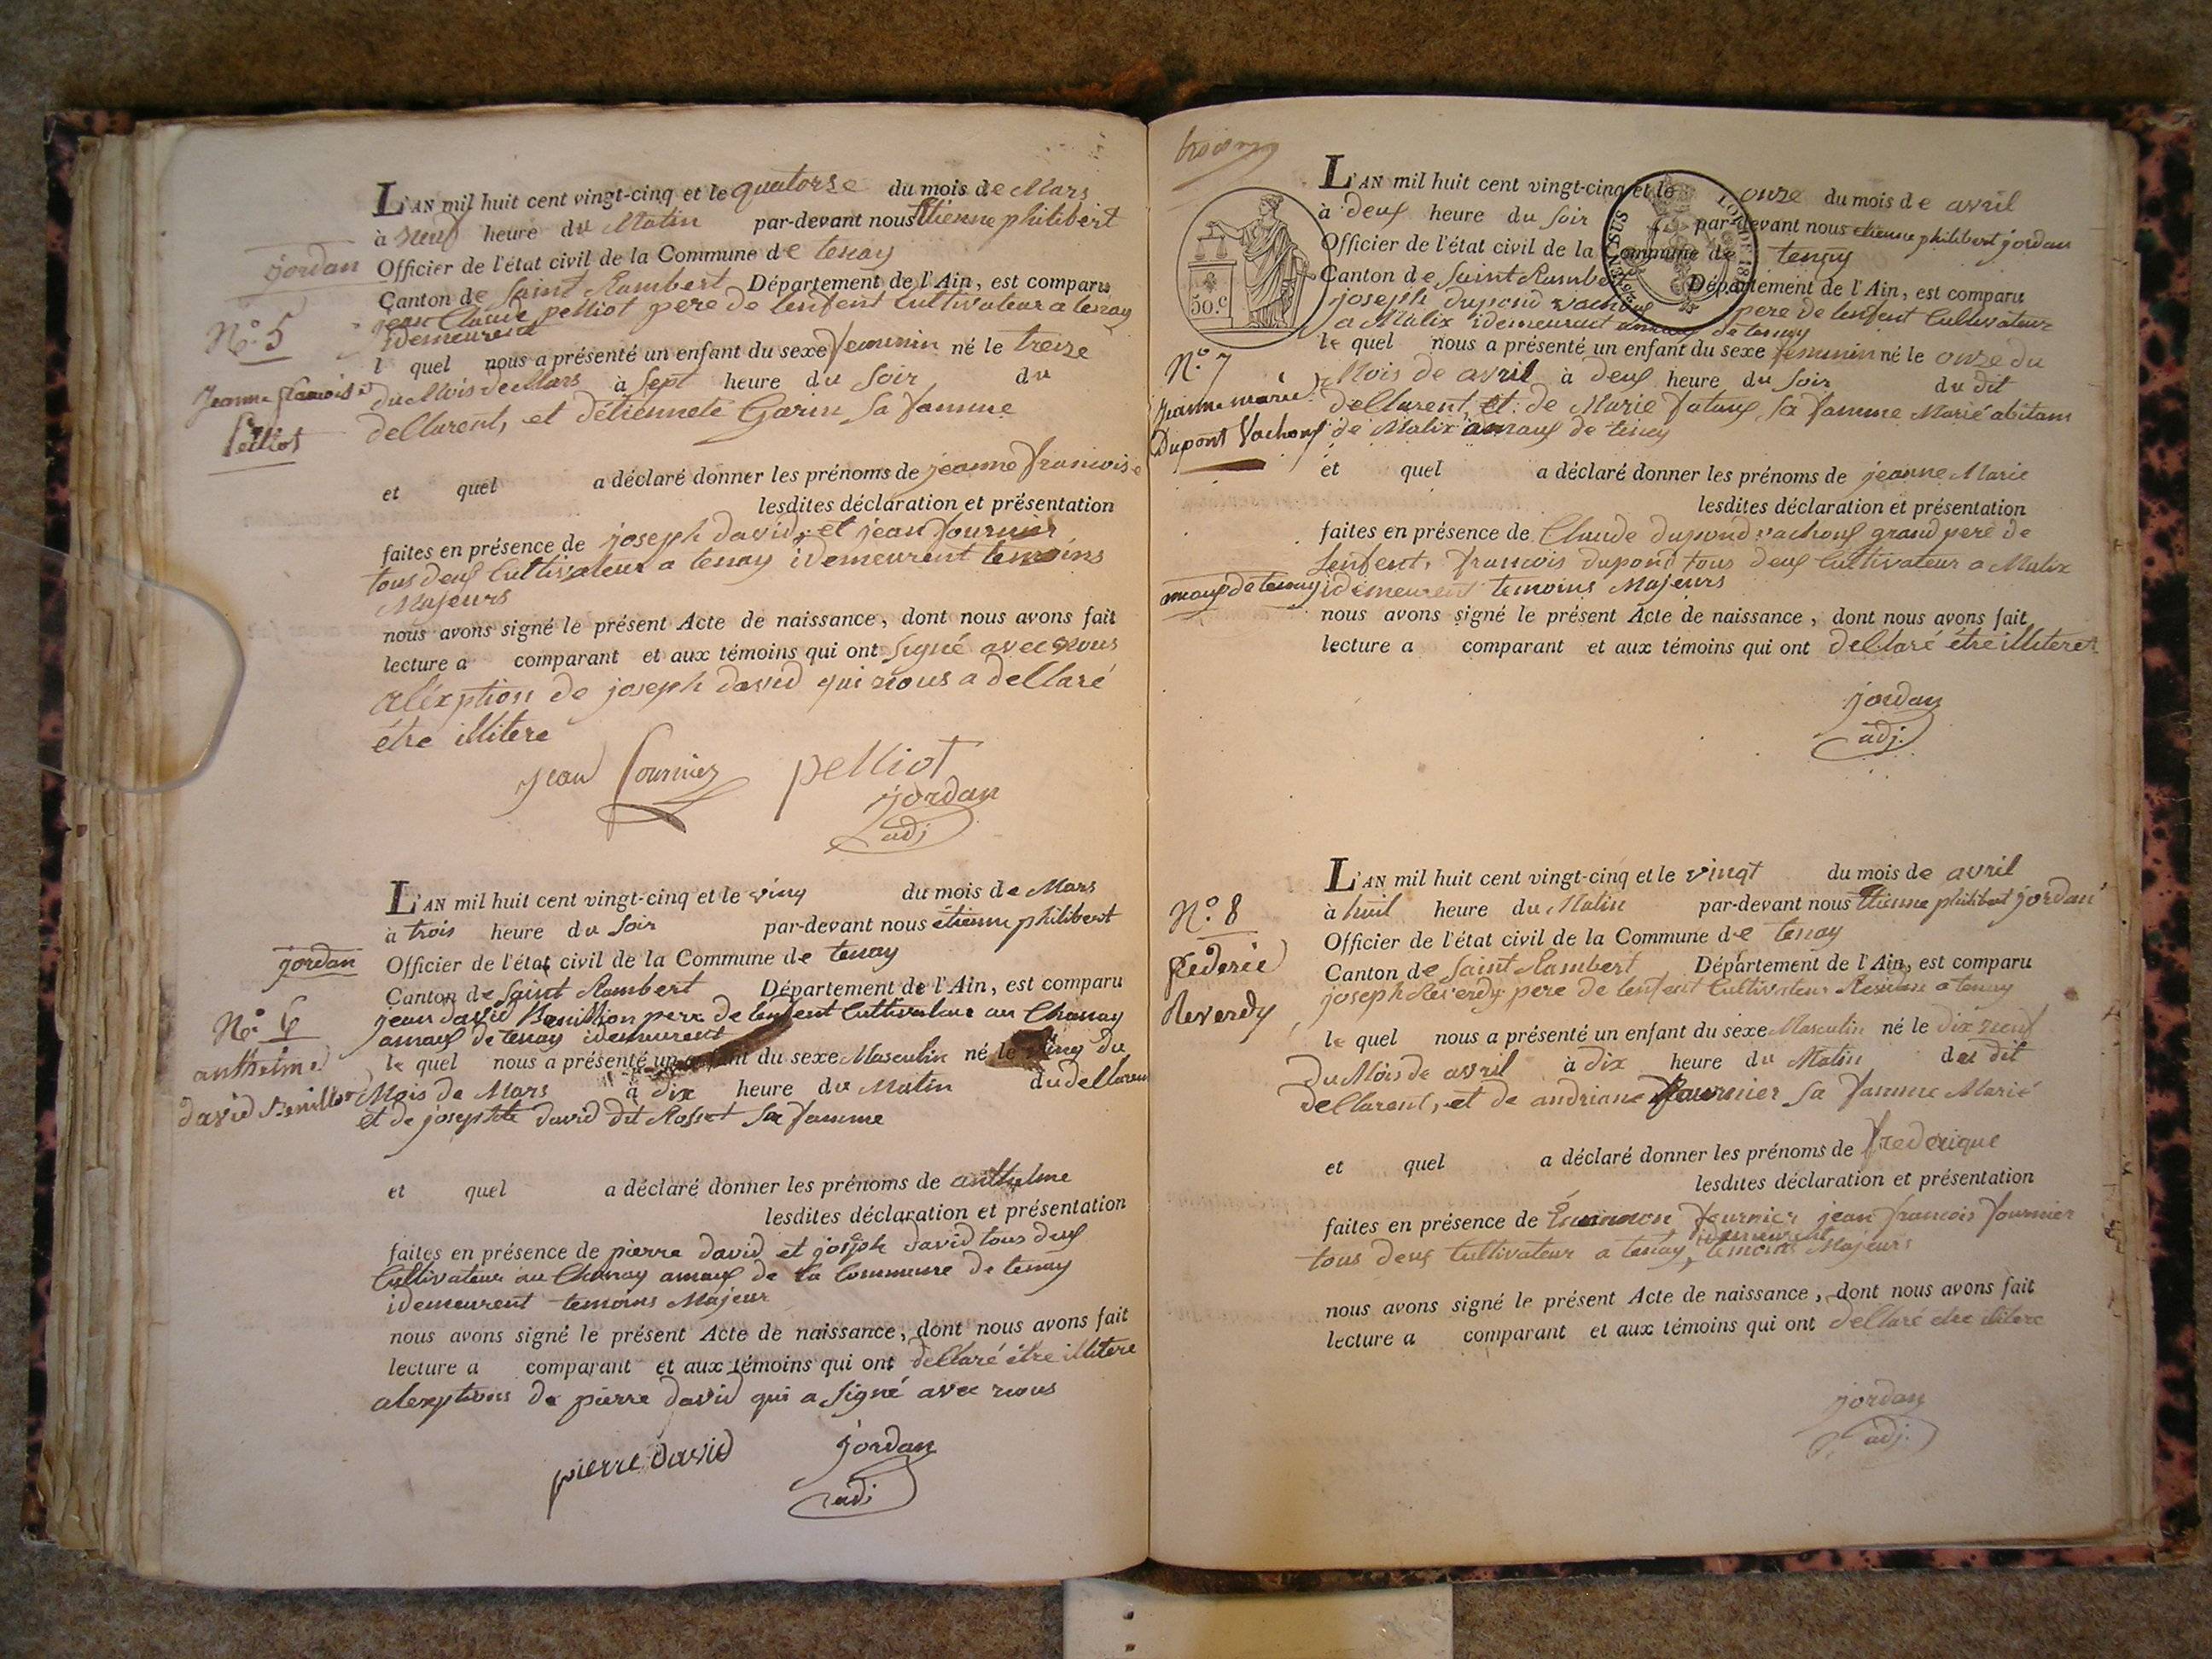 L'AN mil huit cent vingt-cinq et le quatorse du mois de Mars
à neuf heure du Matin par-devant nous Etienne philibert
jordan Officier de l'état civil de la Commune de tenay
Canton de Saint Rambert Département de l'Ain, est comparu
jean Claude pelliot pere de lenfent Cultivateur a tenay
idemeurent
N.º 5
l quel nous a présenté un enfant du sexe femminin né le treize
du Mois de Mars à Sept heure du Soir du
Jeanne francoise
Peilliot
dellarent, et détiennete Garin Sa famme
et quel a déclaré donner les prénoms de jeanne francoise
lesdites déclaration et présentation
faites en présence de joseph david, et jean fournier
tous deux Cultivateur a tenay idemeurent temoins
Majeurs
nous avons signé le présent Acte de naissance, dont nous avons fait
lecture a comparant et aux témoins qui ont Signé avec nous
aléxption de joseph david qui nous a dellaré
étre illitere
jean fournier pelliot
jordan
adj
L'AN mil huit cent vingt-cinq et le ving du mois de Mars
à trois heure du Soir par-devant nous étienne philibert
jordan Officier de l'état civil de la Commune de tenay
Canton de Saint Rambert Département de l'Ain, est comparu
jean david pere de lenfent Cultivateur au Chanay
amaux de tenay idemeurant
N.º 6
anthelme
david
le quel nous a présenté un enfant du sexe Masculin né le ving du
Mois de Mars à dix heure du Matin du dellarent
et de josephte david dit Rosset Sa famme
et quel a déclaré donner les prénoms de anthelme
lesdites déclaration et présentation
faites en présence de pierre david et joseph david tous deux
Cultivateur au Chanay amaux de la Commune de tenay
idemeurent temoins Majeur
nous avons signé le présent Acte de naissance, dont nous avons fait
lecture a comparant et aux témoins qui ont dellaré étre illitere
alexptions de pierre david qui a Signé avec nous
pierre david jordan
adj
50.c
L'AN mil huit cent vingt-cinq et le onze du mois de avril
à deux heure du Soir par-devant nous etienne philibert jordan
Officier de l'état civil de la Commune de tenay
Canton de Saint Rambert Département de l'Ain, est comparu
joseph dupond vachoux pere de lenfent Cultivateur
a Malix idemeurant amaux de tenay
N.º 7
Jeanne marie
Dupont Vachoux
le quel nous a présenté un enfant du sexe femminin né le onze du
Mois de avril à deux heure du Soir du dit
dellarent, et de Marie Sa famme Marié abitans
de Malix amaux de tenay
et quel a déclaré donner les prénoms de jeanne Marie
lesdites déclaration et présentation
faites en présence de Claude dupond vachoux grand pere de
lenfent, francois dupond tous deux Cultivateur a Malix
amaux de tenay idemeurent temoins Majeurs
nous avons signé le présent Acte de naissance, dont nous avons fait
lecture a comparant et aux témoins qui ont dellaré étre illiteret
jordan
adj.
L'AN mil huit cent vingt-cinq et le vingt du mois de avril
à huit heure du Matin par-devant nous Etienne philibert jordan
Officier de l'état civil de la Commune de tenay
Canton de Saint Rambert Département de l'Ain, est comparu
joseph Reverdy pere de lenfent Cultivateur a tenay
N.º 8
Federic
Reverdy
le quel nous a présenté un enfant du sexe Masculin né le dix neuf
du Mois de avril à dix heure du Matin du dit
dellarent, et de andriane fournier Sa famme Marié
et quel a déclaré donner les prénoms de frederique
lesdites déclaration et présentation
faites en présence de fournier jean francois fournier
tous deux Cultivateur a tenay, idemeurent temoins Majeurs
nous avons signé le présent Acte de naissance, dont nous avons fait
lecture a comparant et aux témoins qui ont dellaré etre illitere
jordan
adj.